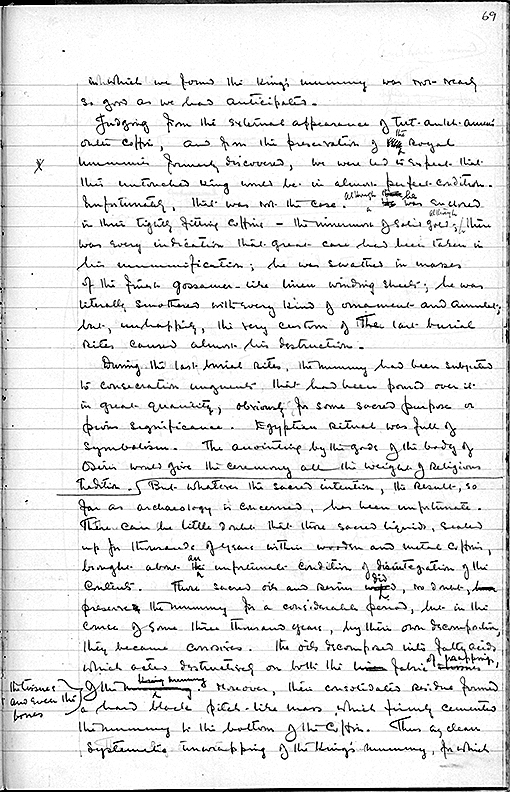 69
in which we found the King's mummy was not nearly
so good as we had anticipated.
Judging from the external appearance of Tut·ankh·Amen's
outer coffin, and from the preservation of the Royal
X
mummies formerly discovered, we were led to expect that
this untouched King would be in almost perfect condition.
Unfortunately, that was not the case. although he was enclosed
in three tightly fitting coffins – the innermost of solid gold; although there
was every indication that great care had been taken in
his mummification; he was swathed in masses
of the finest gossamer-like linen winding sheets; he was
literally smothered with every kind of ornament and amulet;
but, unhappily, the very custom of the last burial
rites caused almost his destruction.
During the last burial rites, the mummy had been subjected
to consecration unguents that had been poured over it
in great quantity, obviously for some sacred purpose or
pious significance. Egyptian ritual was full of
symbolism. The anointing by the gods of the body of
Osiris would give the ceremony all the weight of religious
tradition. But whatever the sacred intention, the result, so
far as archaeology is concerned, has been unfortunate.
There can be little doubt that those sacred liquids, sealed
up for thousands of years within wooden and metal coffins,
brought about an unfortunate condition of disintegration of the
contents. Those sacred oils and resins did, no doubt,
preserve the mummy for a considerable period, but in the
course of some three thousand years, by their own decomposition,
they became corrosive. The oils decomposed into fatty acids
which acted destructively on both the fabric of wrappings,
the tissues and even the bones
of the King's mummy. Moreover, their consolidated residue formed
a hard black pitch-like mass, which firmly cemented
the mummy to the bottom of the coffin. Thus a clean
systematic unwrapping of the King's mummy, for which